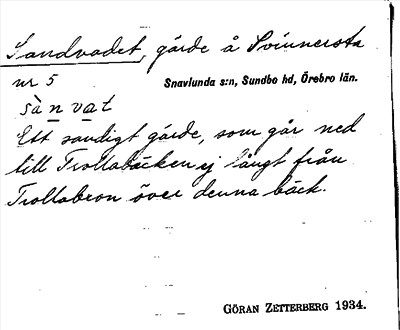 Sandvadet, gärde å Svinnersta
nr 5 Snavlunda s:n, Sundbo hd, Örebro län.
sà n va t
Ett sandigt gärde, som går ned
till Trollabäcken ej långt från
Trollabron över denna bäck.
GÖRAN ZETTERBERG 1934.